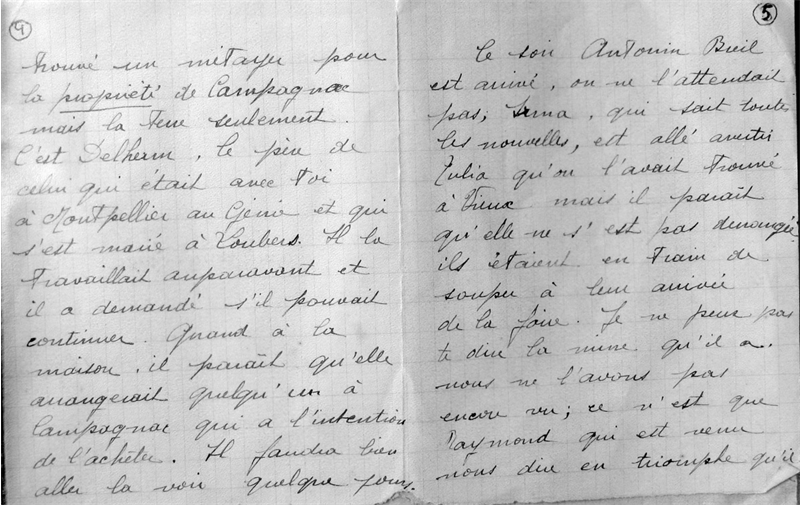 4
trouvé un métayer pour
la propriété de Campagnac
mais la terre seulement.
C'est Delherm, le père de
celui qui était avec toi
à Montpellier au Génie et qui
s'est marié à Loubers. Il la
travaillait auparavant et
il a demandé s'il pouvait
continuer. Quand à la
maison, il paraît qu'elle
arrangerait quelqu'un à
Campagnac qui a l'intention
de l'acheter. Il faudra bien
aller la voir quelque jours.
5
Ce soir Antonin Breil
est arrivé, on ne l'attendait
pas; Irma, qui sait toutes
les nouvelles, est allé avertir
Julia qu'on l'avait trouvé
à Vieux mais il paraît
qu'elle ne s'est pas dérangée
ils étaient en train de
souper à leur arrivée
de la foire. Je ne peux pas
te dire la mine qu'il a.
nous ne l'avons pas
encore vu; ce n'est que
Raymond qui est venu
nous dire en triomphe qu'il